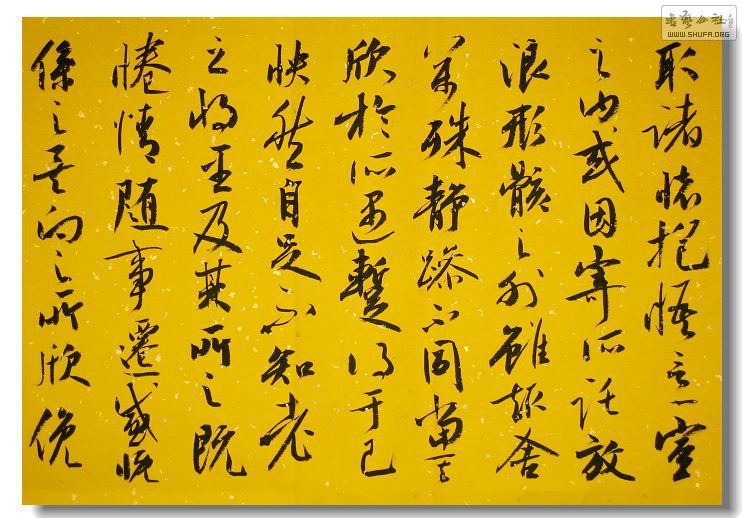 取諸懷抱悟言一室
之內或因寄所託放
浪形骸之外雖趣舍
萬殊靜躁不同當其
欣於所遇暫得于己
怏然自足不知老
之將至及其所之既
惓情随事遷感慨
係之矣向之所欣俛
書藝公社
WWW.SHUFA.ORG